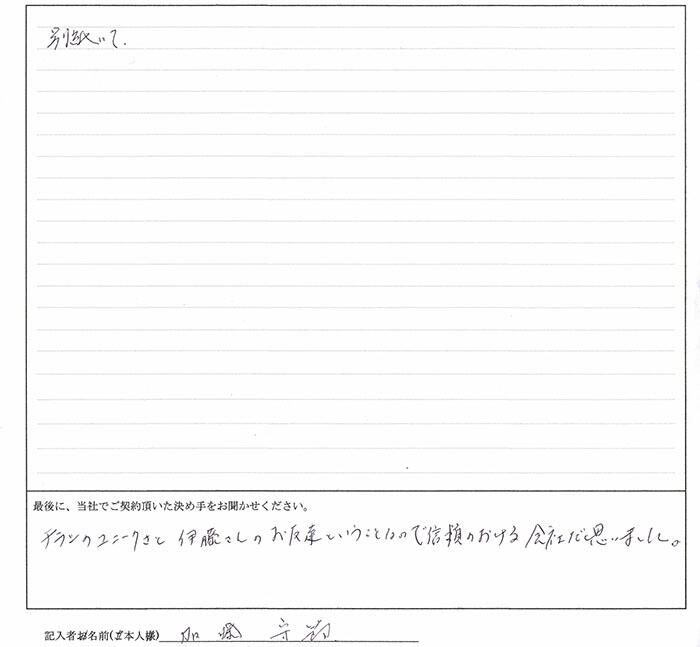 別紙にて.
最後に、当社でご契約頂いた決め手をお聞かせください。
チラシのユニークさと 伊藤さんの お友達ということなので信頼のおける 会社だと思いました。
記入者お名前(ご本人様) 加藤 守